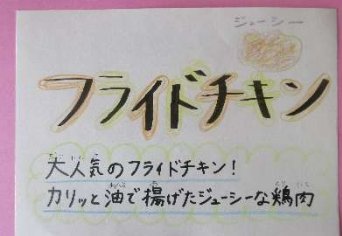 ジューシー
フライドチキン
大人気のフライドチキン!
カリッと油で揚げたジューシーな鶏肉